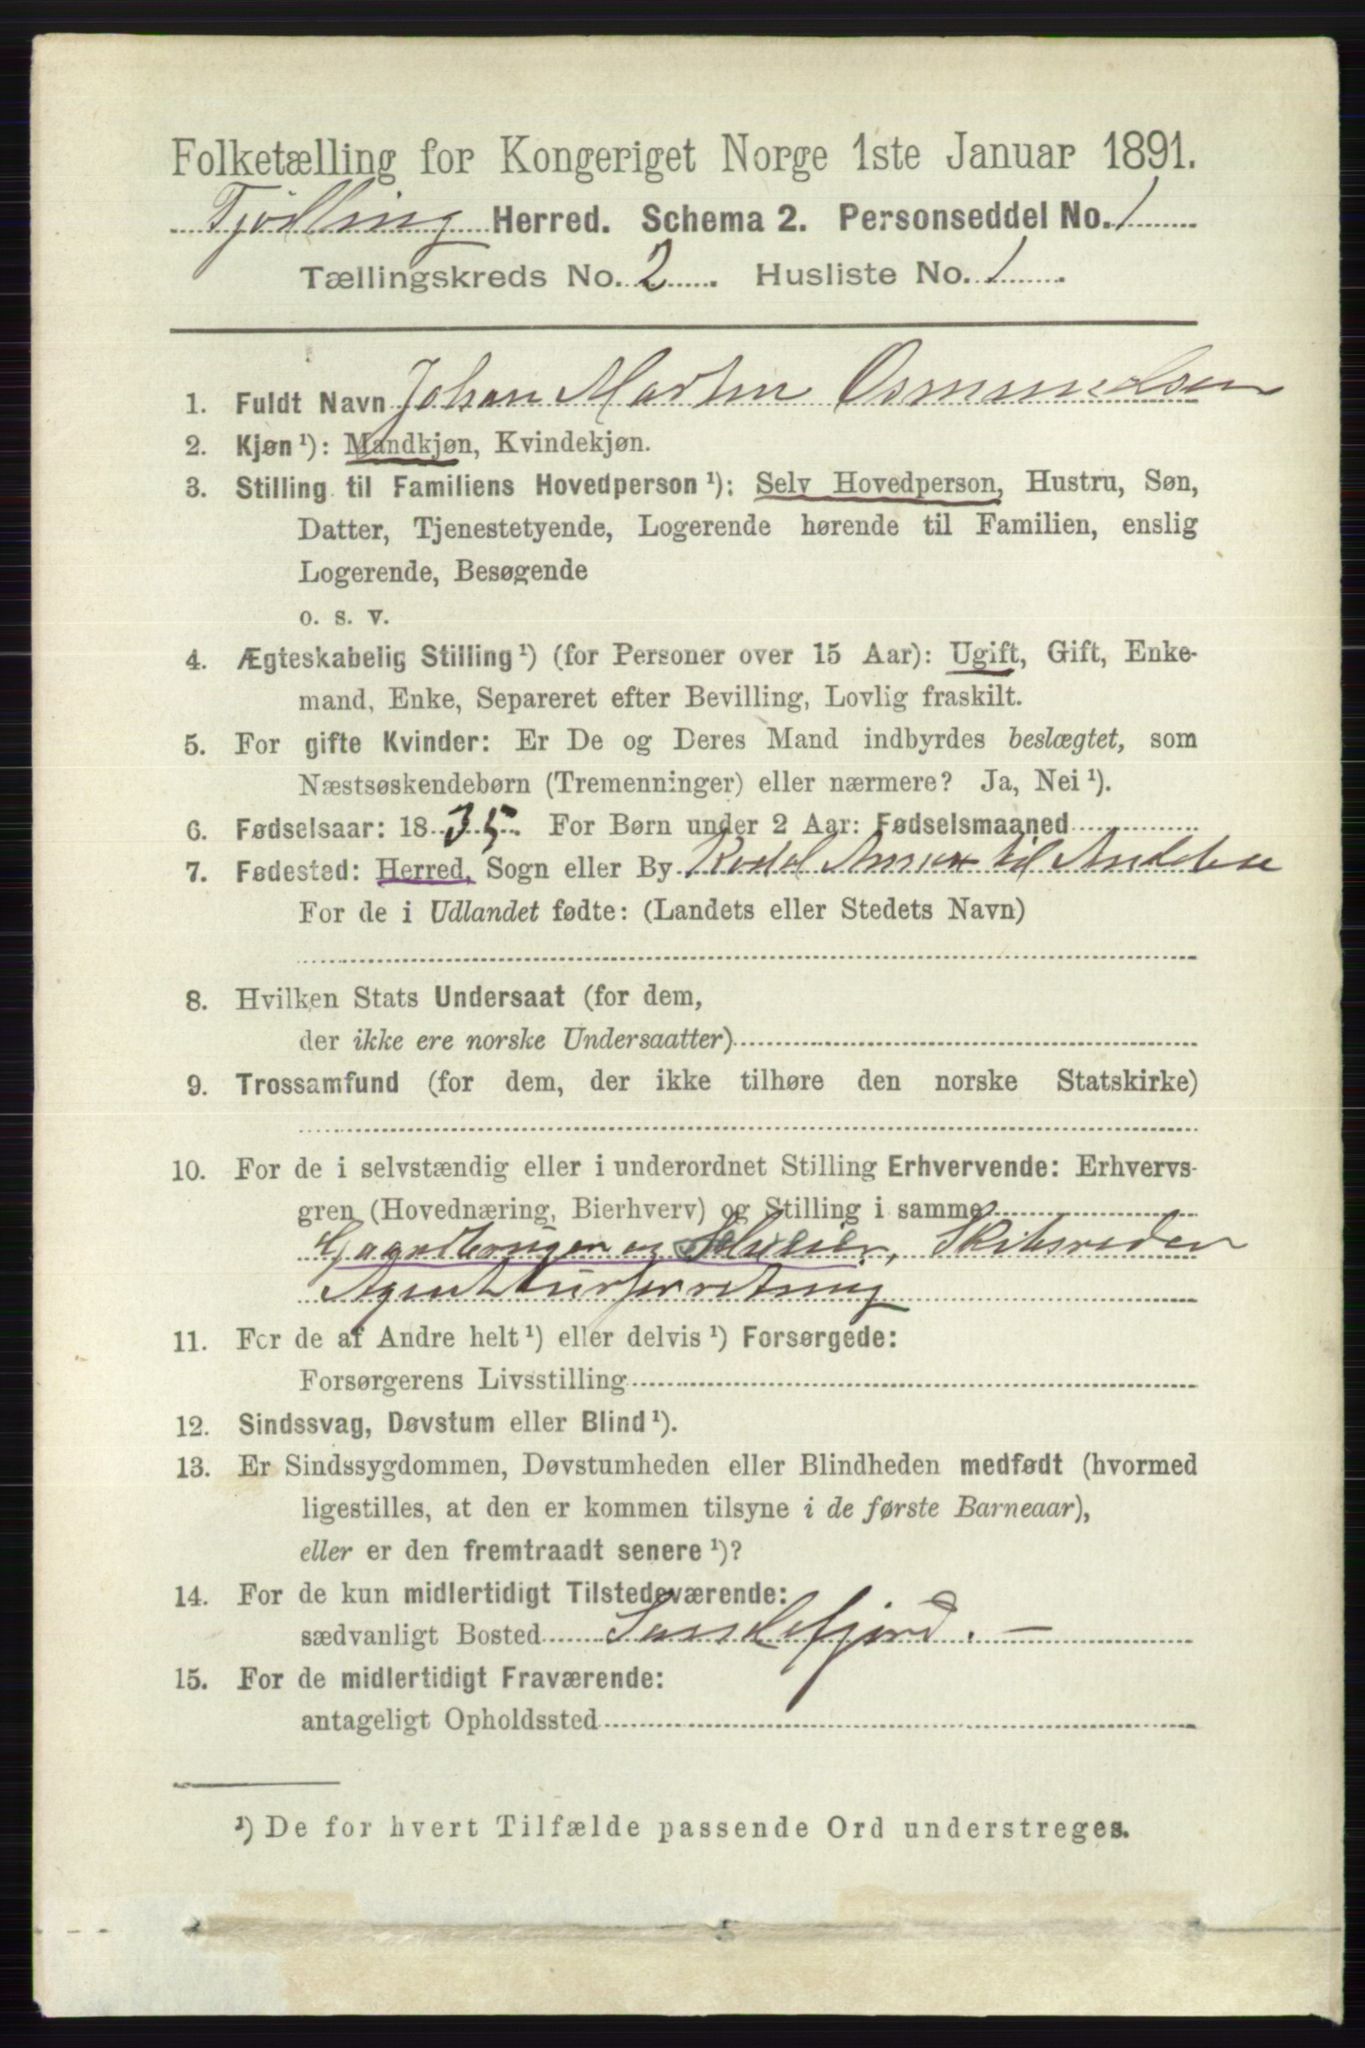 Folketælling for Kongeriget Norge 1ste Januar 1891.
Tjødling Herred. Schema 2. Personseddel No. 1
Tællingskreds No. 2 Husliste No. 1
1. Fuldt Navn Johan Martin Osmundsen
2. Kjøn ¹): Mandkjøn, Kvindekjøn.
3. Stilling til Familiens Hovedperson ¹): Selv Hovedperson, Hustru, Søn,
Datter, Tjenestetyende, Logerende hørende til Familien, enslig
Logerende, Besøgende
o. s. v.
4. Ægteskabelig Stilling ¹) (for Personer over 15 Aar): Ugift, Gift, Enke-
mand, Enke, Separeret efter Bevilling, Lovlig fraskilt.
5. For gifte Kvinder: Er De og Deres Mand indbyrdes beslægtet, som
Næstsøskendebørn (Tremenninger) eller nærmere? Ja, Nei ¹).
6. Fødselsaar: 1835. For Børn under 2 Aar: Fødselsmaaned
7. Fødested: Herred, Sogn eller By Kodal Annex til Andebu
For de i Udlandet fødte: (Landets eller Stedets Navn)
8. Hvilken Stats Undersaat (for dem,
der ikke ere norske Undersaatter)
9. Trossamfund (for dem, der ikke tilhøre den norske Statskirke)
10. For de i selvstændig eller i underordnet Stilling Erhvervende: Erhvervs-
gren (Hovednæring, Bierhverv) og Stilling i samme
Gaardbruger og Selveier, Skibsreder
Agenturforretning
11. For de af Andre helt ¹) eller delvis ¹) Forsørgede:
Forsørgerens Livsstilling
12. Sindssvag, Døvstum eller Blind ¹).
13. Er Sindssygdommen, Døvstumheden eller Blindheden medfødt (hvormed
ligestilles, at den er kommen tilsyne i de første Barneaar),
eller er den fremtraadt senere ¹)?
14. For de kun midlertidigt Tilstedeværende:
sædvanligt Bosted Sandefjord. —
15. For de midlertidigt Fraværende:
antageligt Opholdssted
¹) De for hvert Tilfælde passende Ord understreges.